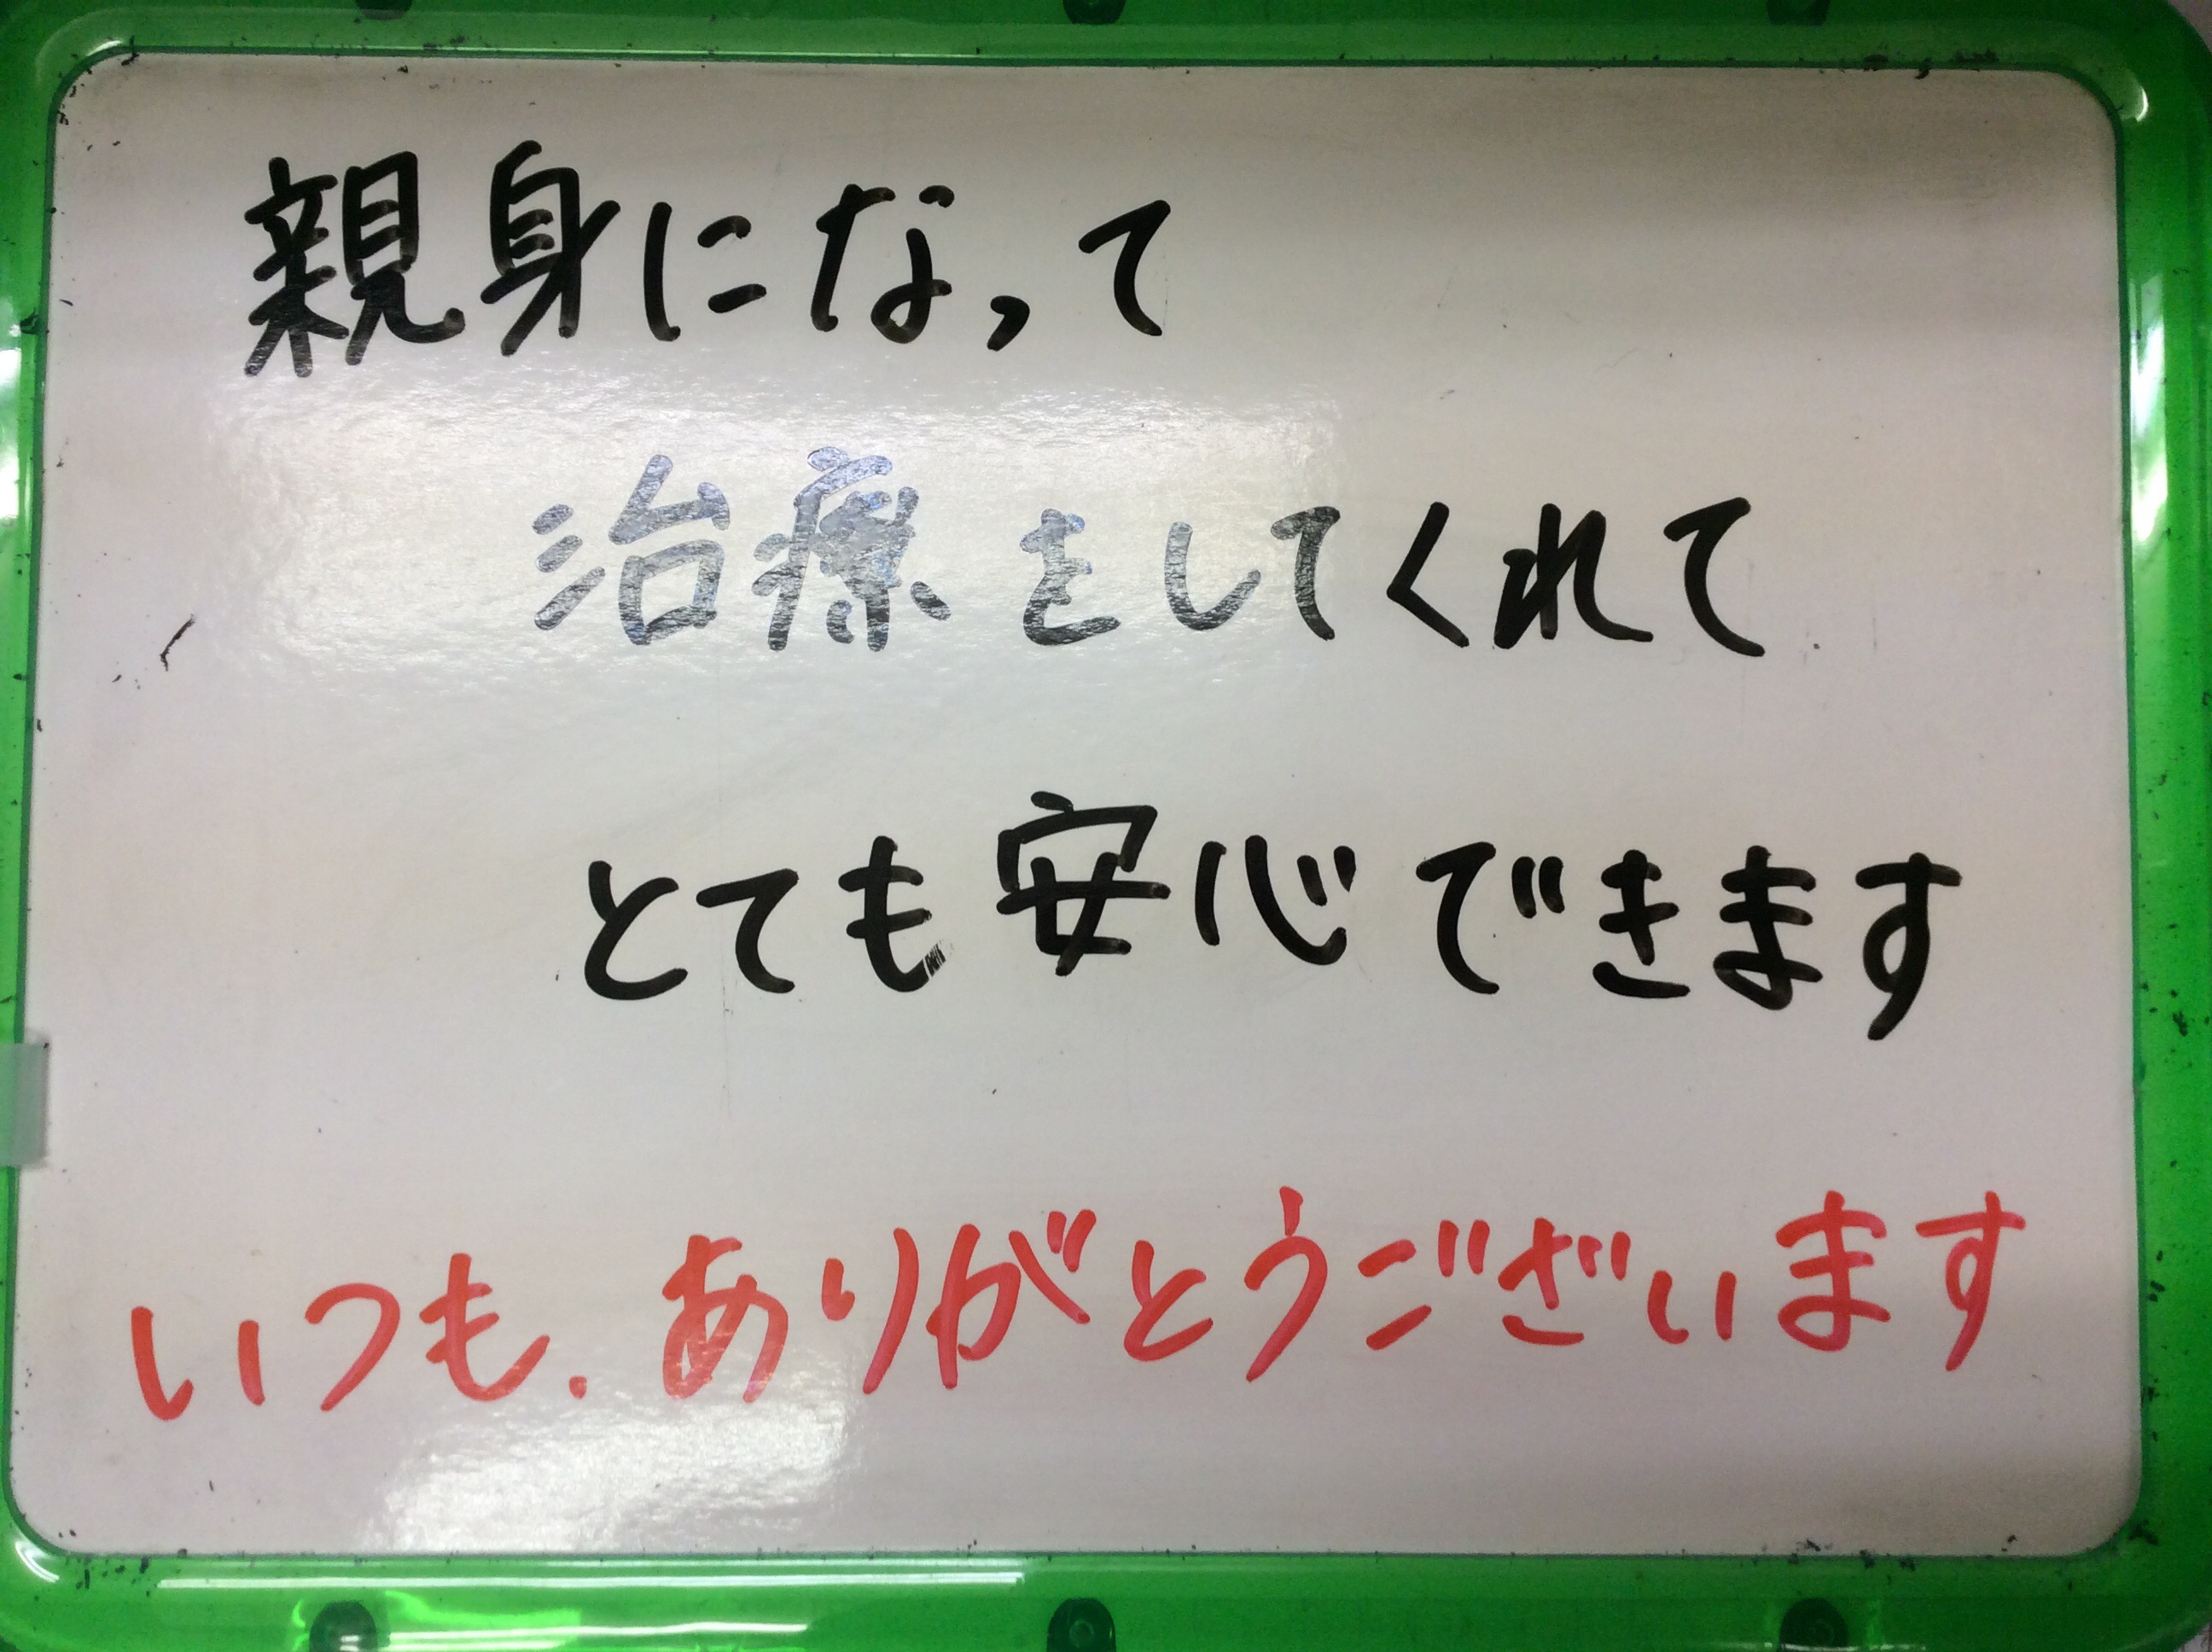 親身になって
治療をしてくれて
とても安心できます
いつも.ありがとうございます